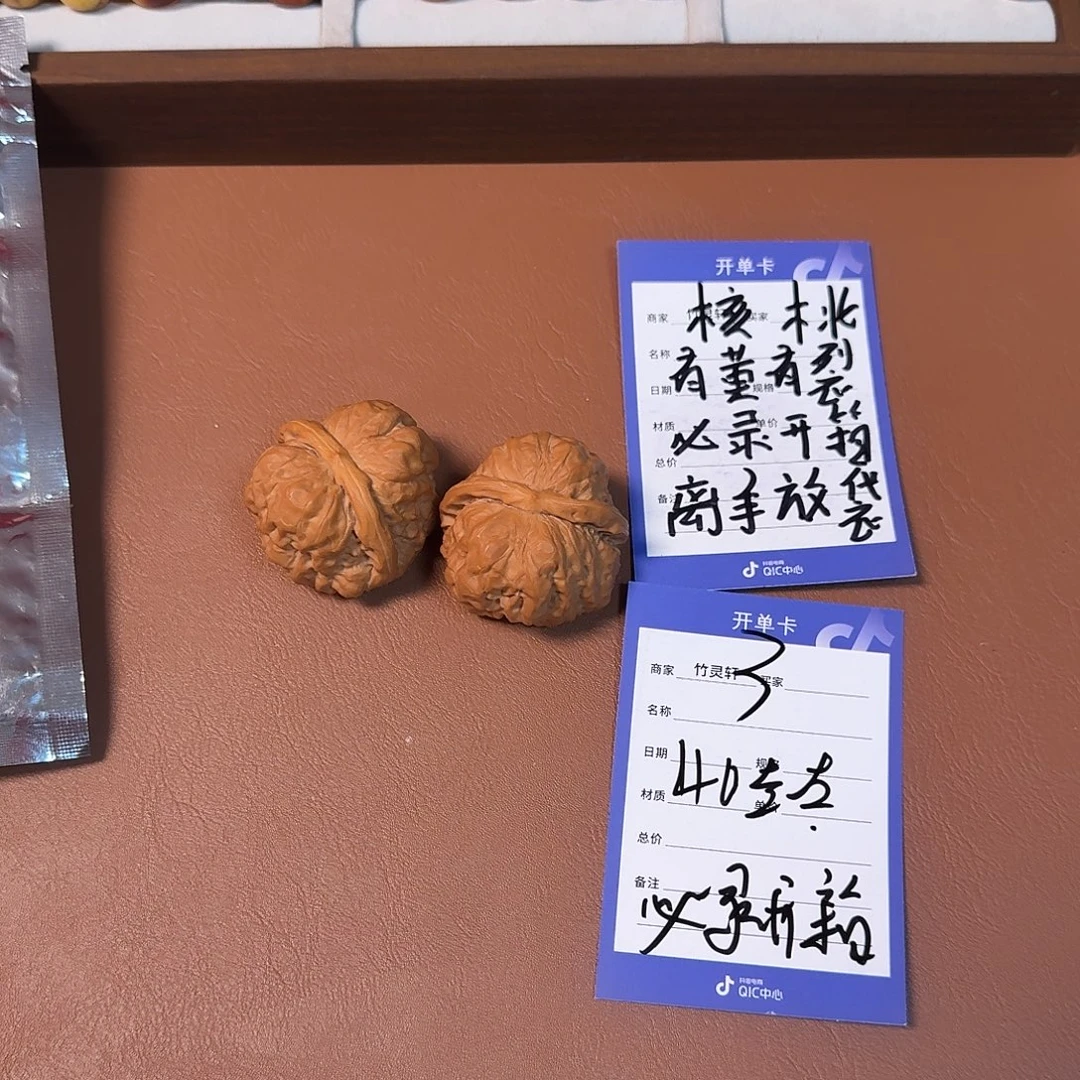 开单卡
商家 竹灵轩 买家
核桃
名称
有薰有裂
日期 规格
材质 单价
必录开箱
总价
备注
离手放
抖音电商
QIC中心
开单卡
3
商家 竹灵轩 买家
名称
日期 规格
40左右
材质 单价
总价
备注
必录开箱
抖音电商
QIC中心